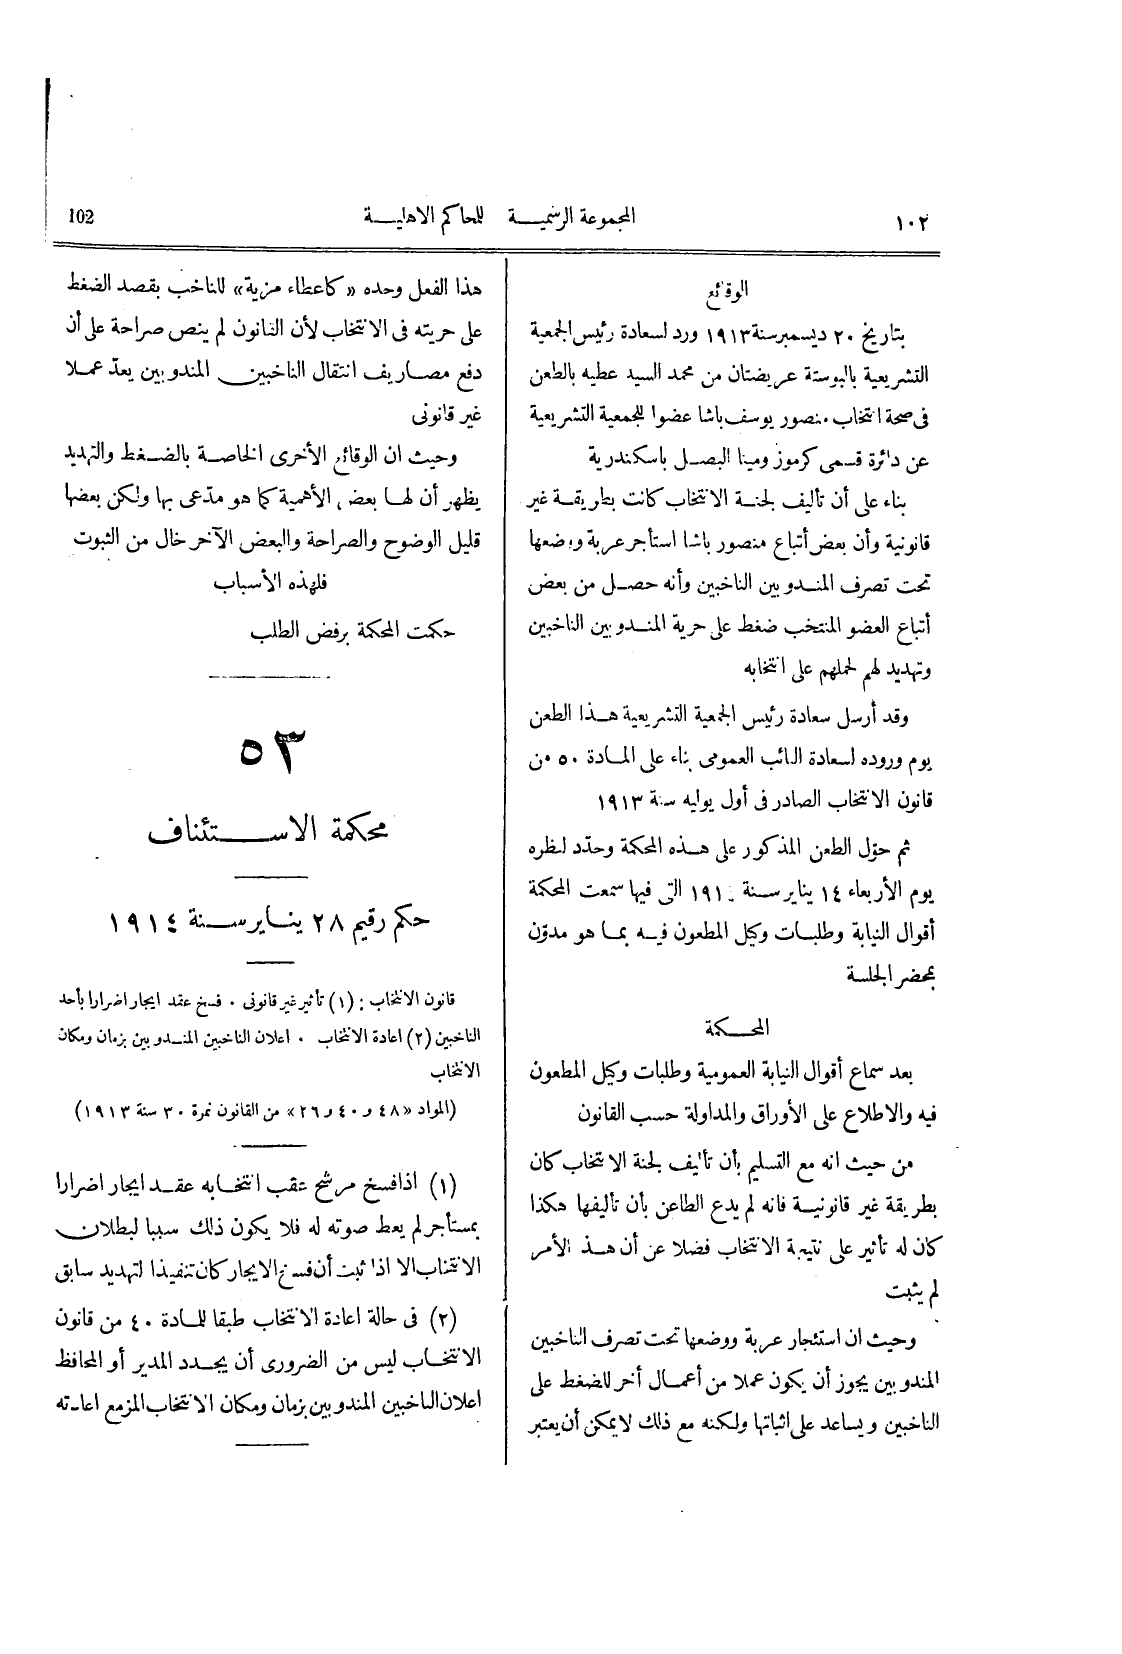 ١٠٢
المجموعة الرسمية للمحاكم الاهلية
102
الوقائع
بتاريخ ٢٠ ديسمبر سنة ١٩١٣ ورد لسعادة رئيس الجمعية
التشريعية بالبوستة عريضتان من محمد السيد عطيه بالطعن
فى صحة انتخاب منصور يوسف باشا عضوا للجمعية التشريعية
عن دائرة قسمى كرموز ومينا البصل باسكندرية
بناء على أن تأليف لجنة الانتخاب كانت بطريقة غير
قانونية وأن بعض أتباع منصور باشا استأجر عربة وضعها
تحت تصرف المندوبين الناخبين وأنه حصل من بعض
أتباع العضو المنتخب ضغط على حرية المندوبين الناخبين
وتهديد لهم لحملهم على انتخابه
وقد أرسل سعادة رئيس الجمعية التشريعية هذا الطعن
يوم وروده لسعادة النائب العمومى بناء على المادة ٥٠ من
قانون الانتخاب الصادر فى أول يوليه سنة ١٩١٣
ثم حوّل الطعن المذكور على هذه المحكمة وحدّد لنظره
يوم الأربعاء ١٤ يناير سنة ١٩١ التى فيها سمعت المحكمة
أقوال النيابة وطلبات وكيل المطعون فيه بما هو مدوّن
بمحضر الجلسة
المحكمة
بعد سماع أقوال النيابة العمومية وطلبات وكيل المطعون
فيه والاطلاع على الأوراق والمداولة حسب القانون
من حيث انه مع التسليم بأن تأليف لجنة الانتخاب كان
بطريقة غير قانونية فانه لم يدع الطاعن بأن تأليفها هكذا
كان له تأثير على نتيجة الانتخاب فضلا عن أن هذ الأمر
لم يثبت
وحيث ان استئجار عربة ووضعها تحت تصرف الناخبين
المندوبين يجوز أن يكون عملا من أعمال أخر للضغط على
الناخبين ويساعد على اثباتها ولكنه مع ذلك لا يمكن أن يعتبر
هذا الفعل وحده «كاعطاء مزية» للناخب بقصد الضغط
على حريته فى الانتخاب لأن القانون لم ينص صراحة على أن
دفع مصاريف انتقال الناخبين المندوبين يعدّ عملا
غير قانونى
وحيث ان الوقائع الأخرى الخاصة بالضغط والتهديد
يظهر أن لها بعض الأهمية كما هو مدّعى بها ولكن بعضها
قليل الوضوح والصراحة والبعض الآخر خال من الثبوت
فلهذه الأسباب
حكمت المحكمة برفض الطلب
٥٣
محكمة الاستئناف
حكم رقيم ٢٨ يناير سنة ١٩١٤
قانون الانتخاب : (١) تأثير غير قانونى ٠ فسخ عقد ايجار اضرارا بأحد
الناخبين (٢) اعادة الانتخاب ٠ اعلان الناخبين المندوبين بزمان ومكان
الانتخاب
(المواد «٤٨ و ٤٠ و ٢٦» من القانون نمرة ٣٠ سنة ١٩١٣)
(١) اذا فسخ مرشح عقب انتخابه عقد ايجار اضرارا
بمستأجر لم يعط صوته له فلا يكون ذلك سببا لبطلان
الانتخاب الا اذا ثبت أن فسخ الايجار كان تنفيذا لتهديد سابق
(٢) فى حالة اعادة الانتخاب طبقا للمادة ٤٠ من قانون
الانتخاب ليس من الضرورى أن يجدد المدير أو المحافظ
اعلان الناخبين المندوبين بزمان ومكان الانتخاب المزمع اعادته